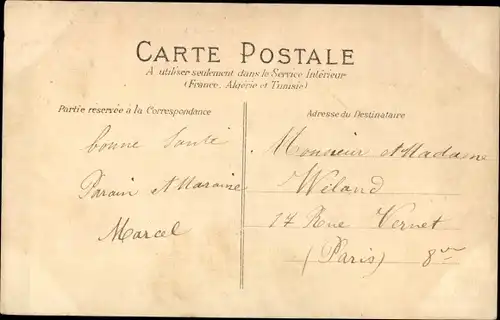 CARTE POSTALE
A utiliser seulement dans le Service Intérieur
(France, Algérie et Tunisie)
Partie réservée à la Correspondance
Adresse du Destinataire
bonne Santé
Parain et Maraine
Marcel
Monsieur et Madame
Wiland
17 Rue Vernet
(Paris) 8me